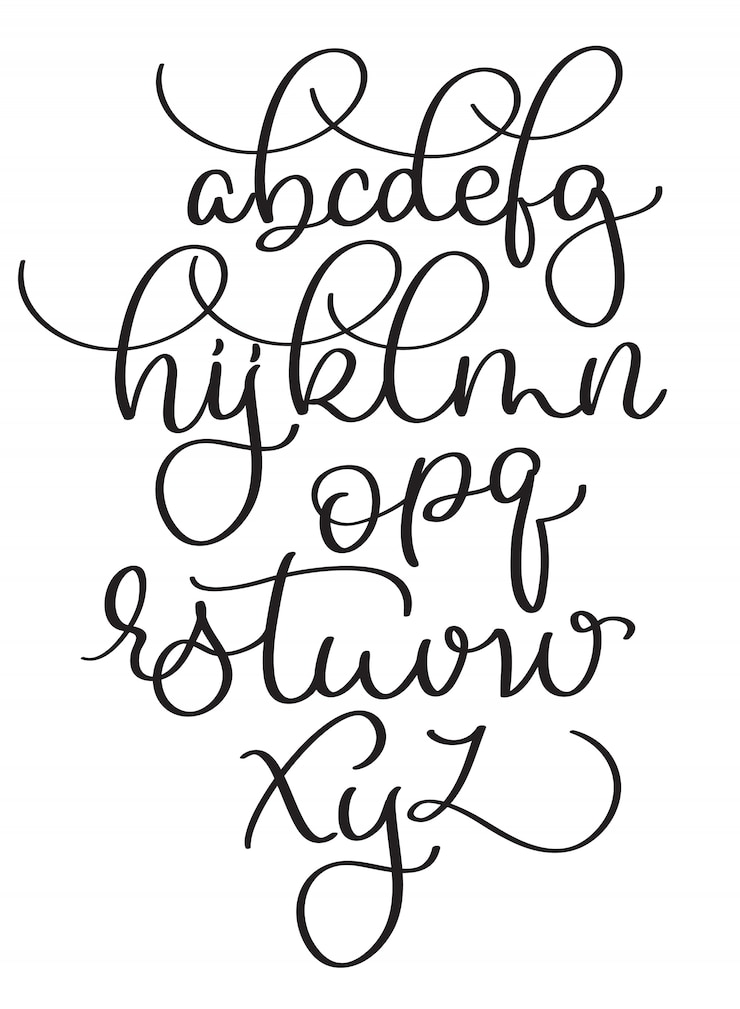 abcdefg
hijklmn
opq
rstuvw
xyz